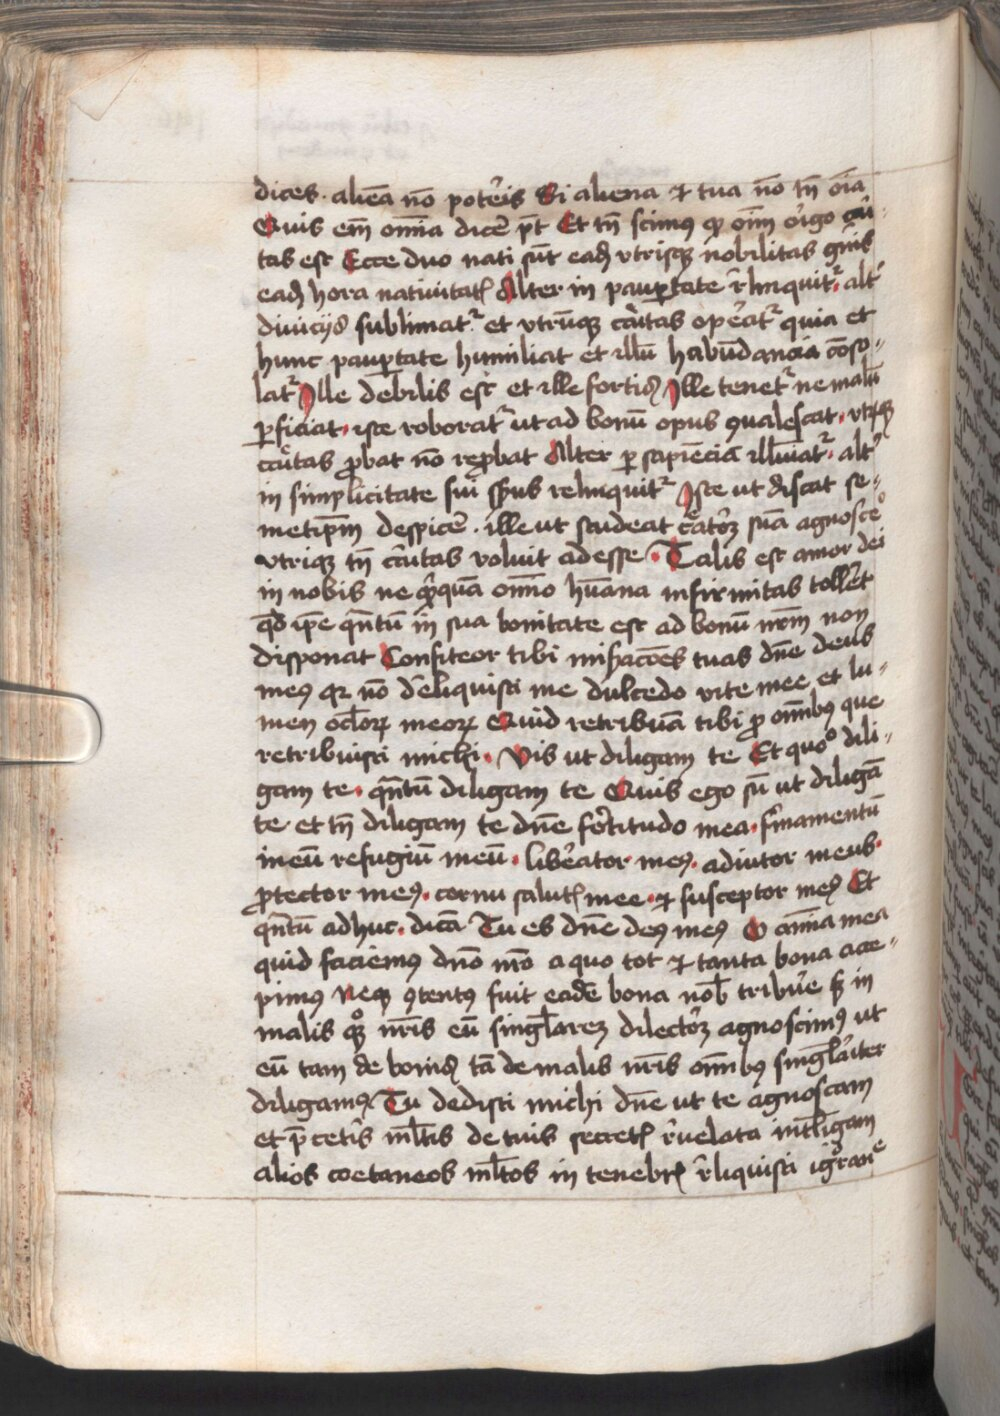 dices · alienā nō potēis Si aliena ⁊ tua nō tn̄ oīa
Quis em̄ omīa dicē pt̄ Et tn̄ scimꝰ ꝙ oīm oīgo cāi
tas est Ecce duo nati sūt eadē vtrisqꝫ nobilitas gn̄is
eadē hora natiuitatꝭ Alter in paupertate r̄linquitᷣ · altᷣ
diuicijs sublimatᷣ et vtrūqꝫ cāitas opēatᷣ quia et
hunc pauꝑtate humiliat et illū habūdancia cōso
latᷣ Ille debilis est et ille fortis Ille tenetᷣ ne malū
ꝑficiat · iste roboratᷣ ut ad bonū opus ꝯualescat · vtrūqꝫ
cāitas ꝓbat nō reꝓbat Alter ꝑ sapiēciā illūiatᷣ · altᷣ
in simplicitate sui sensus relinquitᷣ Iste ut discat se
metip̄m despicē · ille ut studeat cᷓatorē suā agnoscē
vtriqꝫ tn̄ cāitas voluit adesse · Talis est amor dei
in nobis ne q̄quā omīo hūana infirmitas tollēt
qd̄ ip̄e qn̄tū in sua bonitate est ad bonū nr̄m non
disponat Confiteor tibi mis̄acōes tuas dn̄e deus
meꝰ qꝛ nō dēliquisti me dulcedo vite mee et lu
men oclōꝝ meoꝝ Quid retribuā tibi ꝓ omībꝰ que
retribuisti michi · Vis ut diligam te Et quoº dili
gam te · qn̄tū diligam te Quis ego sū ut diligā
te et tn̄ diligam te dn̄e fortitudo mea · firmamentū
meū refugiū meū · libēator meꝰ · adiutor meus ·
ꝓtector meꝰ · cornu salutꝭ mee · ⁊ susceptor meꝰ Et
qn̄tū adhuc · dicā Tu es dn̄e deꝰ meꝰ O anīa mea
quid faciemꝰ dn̄o nr̄o a quo tot ⁊ tanta bona acce
pimꝰ Neqꝫ ꝯtentꝰ fuit eadē bona nob̄ tribuē sꝫ in
malis qꝫ nr̄is eū singl̄arē dilectorē agnoscimꝰ ut
eū tam de bonis tā de malis nr̄is omībꝰ singl̄aiter
diligamꝰ Tu dedisti michi dn̄e ut te agnoscam
et p̄ cetīs ml̄tis de tuis secretꝭ r̄uelata intl̄ligam
alios coetaneos ml̄tos in tenebrꝭ r̄liquisti ignorancᵉ